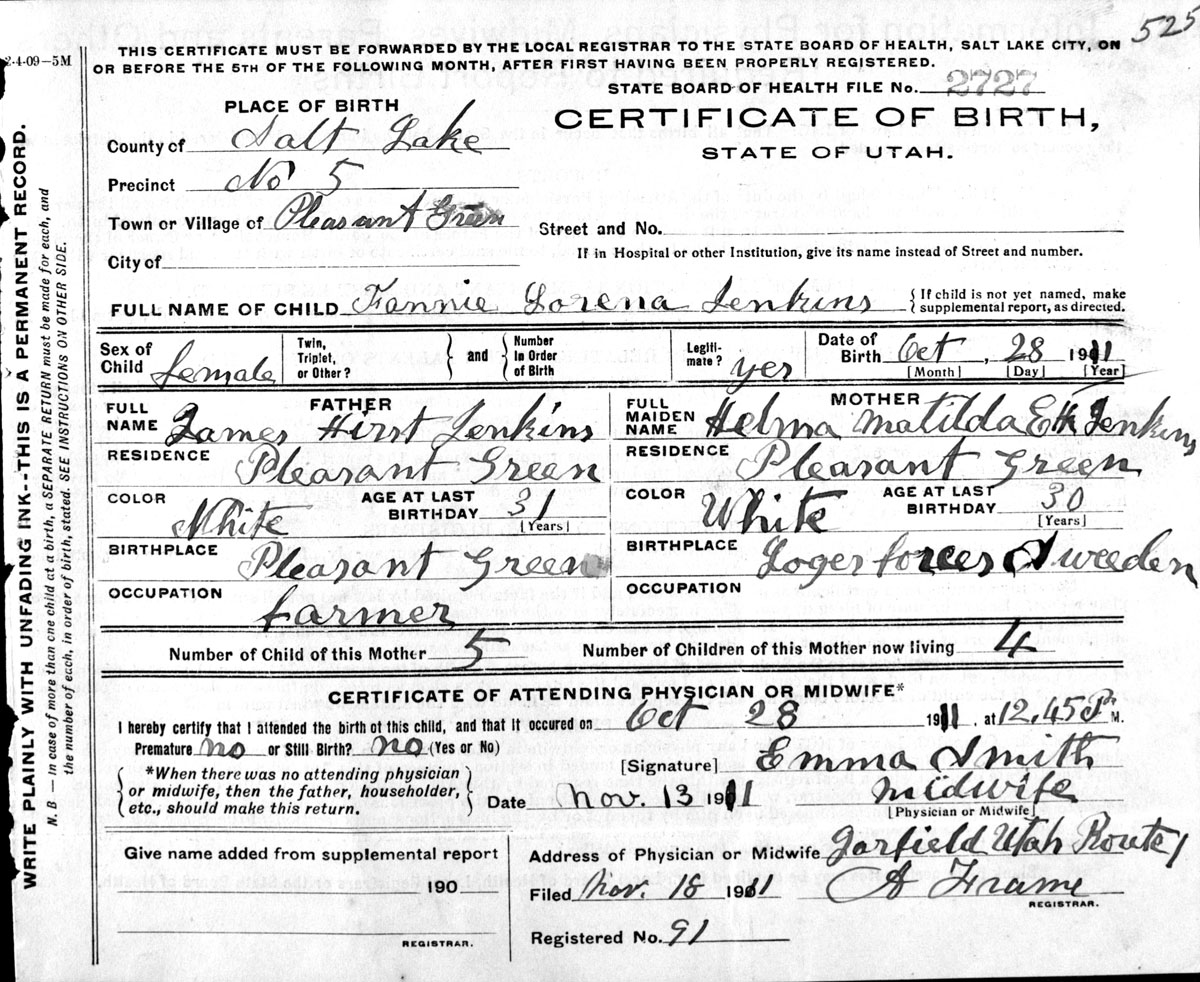 525
2-4-09-5M
THIS CERTIFICATE MUST BE FORWARDED BY THE LOCAL REGISTRAR TO THE STATE BOARD OF HEALTH, SALT LAKE CITY, ON
OR BEFORE THE 5TH OF THE FOLLOWING MONTH, AFTER FIRST HAVING BEEN PROPERLY REGISTERED.
STATE BOARD OF HEALTH FILE No. 2727
PLACE OF BIRTH
CERTIFICATE OF BIRTH,
STATE OF UTAH.
County of Salt Lake
Precinct No 5
Town or Village of Pleasant Green
Street and No.
City of
If in Hospital or other Institution, give its name instead of Street and number.
FULL NAME OF CHILD Fannie Lorena Jenkins { If child is not yet named, make
supplemental report, as directed.
Sex of Child female
Twin, Triplet, or Other? } and { Number in Order of Birth
Legiti-mate? yes
Date of Birth Oct, 28 1911
[Month] [Day] [Year]
FATHER
FULL NAME James Hirst Jenkins
RESIDENCE Pleasant Green
COLOR White AGE AT LAST BIRTHDAY 31
[Years]
BIRTHPLACE Pleasant Green
OCCUPATION farmer
MOTHER
FULL MAIDEN NAME Helma Matilda Ek Jenkins
RESIDENCE Pleasant Green
COLOR White AGE AT LAST BIRTHDAY 30
[Years]
BIRTHPLACE Sweeden
OCCUPATION
Number of Child of this Mother 5 Number of Children of this Mother now living 4
CERTIFICATE OF ATTENDING PHYSICIAN OR MIDWIFE*
I hereby certify that I attended the birth of this child, and that it occured on Oct 28 1911, at 12.45 P M.
Premature no or Still Birth? no (Yes or No)
[Signature] Emma Smith
{ *When there was no attending physician
or midwife, then the father, householder,
etc., should make this return. }
Date Nov. 13 1911
midwife
[Physician or Midwife]
Give name added from supplemental report
190
REGISTRAR.
Address of Physician or Midwife Garfield Utah Route 1
Filed Nov. 18 1911 A Frame
REGISTRAR.
Registered No. 91
WRITE PLAINLY WITH UNFADING INK--THIS IS A PERMANENT RECORD.
N. B. — In case of more than one child at a birth, a SEPARATE RETURN must be made for each, and
the number of each, in order of birth, stated. SEE INSTRUCTIONS ON OTHER SIDE.